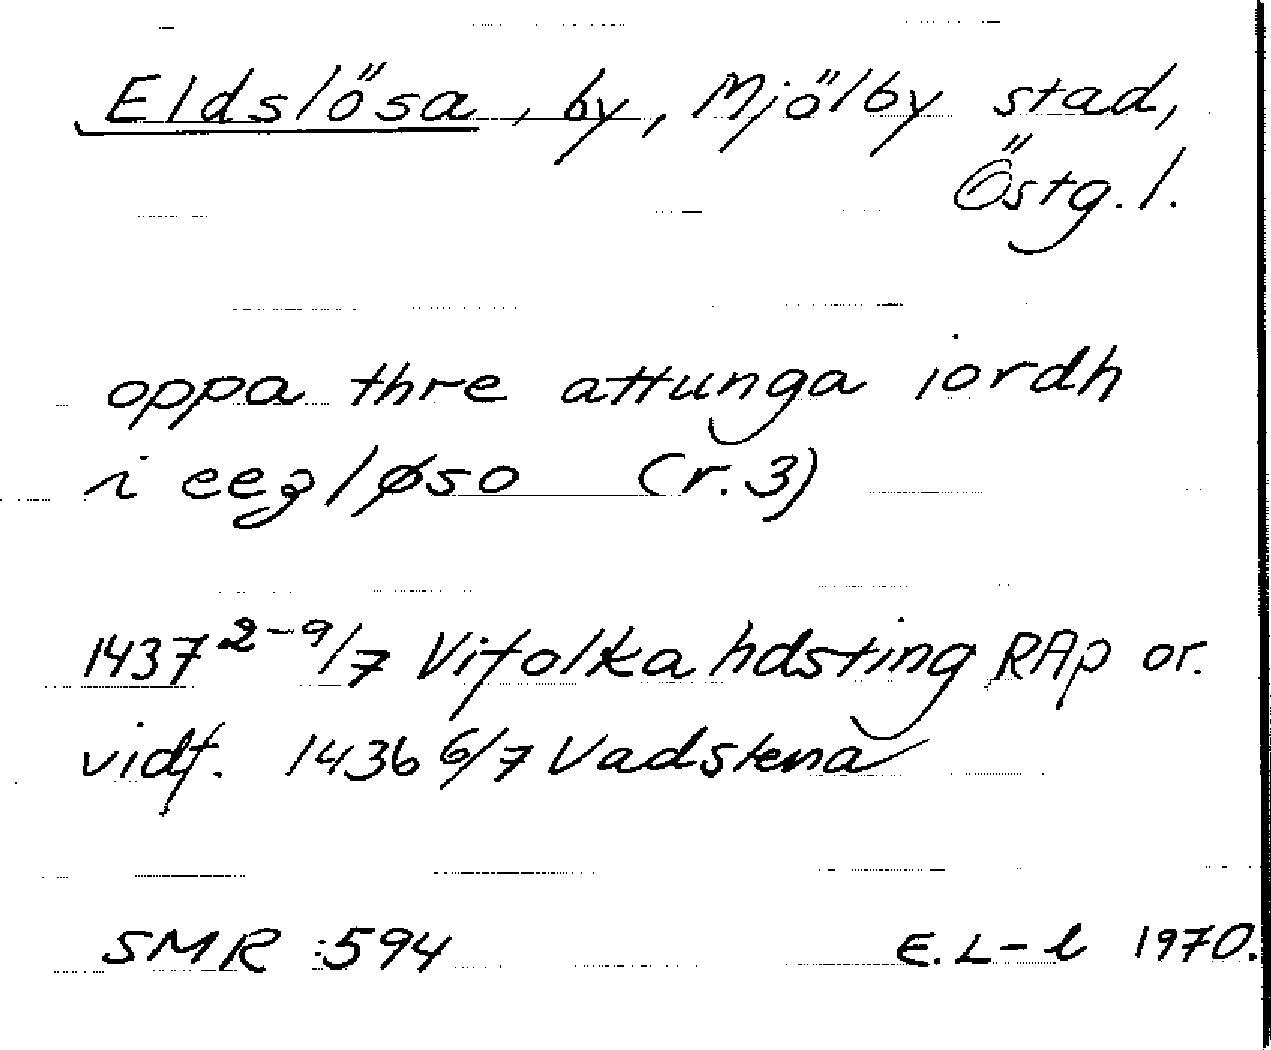 Eldslösa, by, Mjölby stad,
Östg. l.
oppa thre attunga iordh
i eeʒløso (r. 3)
1437 2-9/7 Vifolka hdsting RAp or.
vidf. 1436 6/7 Vadstena
SMR :594 E. L-l 1970.